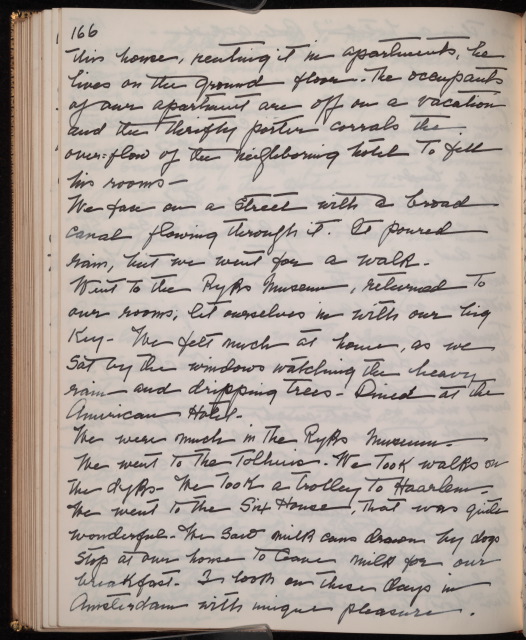 166
this house, renting it in apartments, he
lives on the ground floor. The occupants
of our apartment are off on a vacation
and the thrifty porter corrals the
over-flow of the neighboring hotel to fill
his rooms —
We face on a street with a broad
canal flowing through it. It poured
rain, but we went for a walk.
Went to the Ryks Museum, returned to
our rooms, let ourselves in with our big
Key - We felt much at home, as we
Sat by the windows watching the heavy
rain and dripping trees - Dined at the
American Hotel.
We were much in the Ryks Museum.
We went to the Tolhuis. We took walks on
the dyks. We took a trolley to Haarlem.
We went to the Six House, that was quite
wonderful. We saw milk cans drawn by dogs
stop at our house to leave milk for our
breakfast. I look on these days in
Amsterdam with unique pleasure.